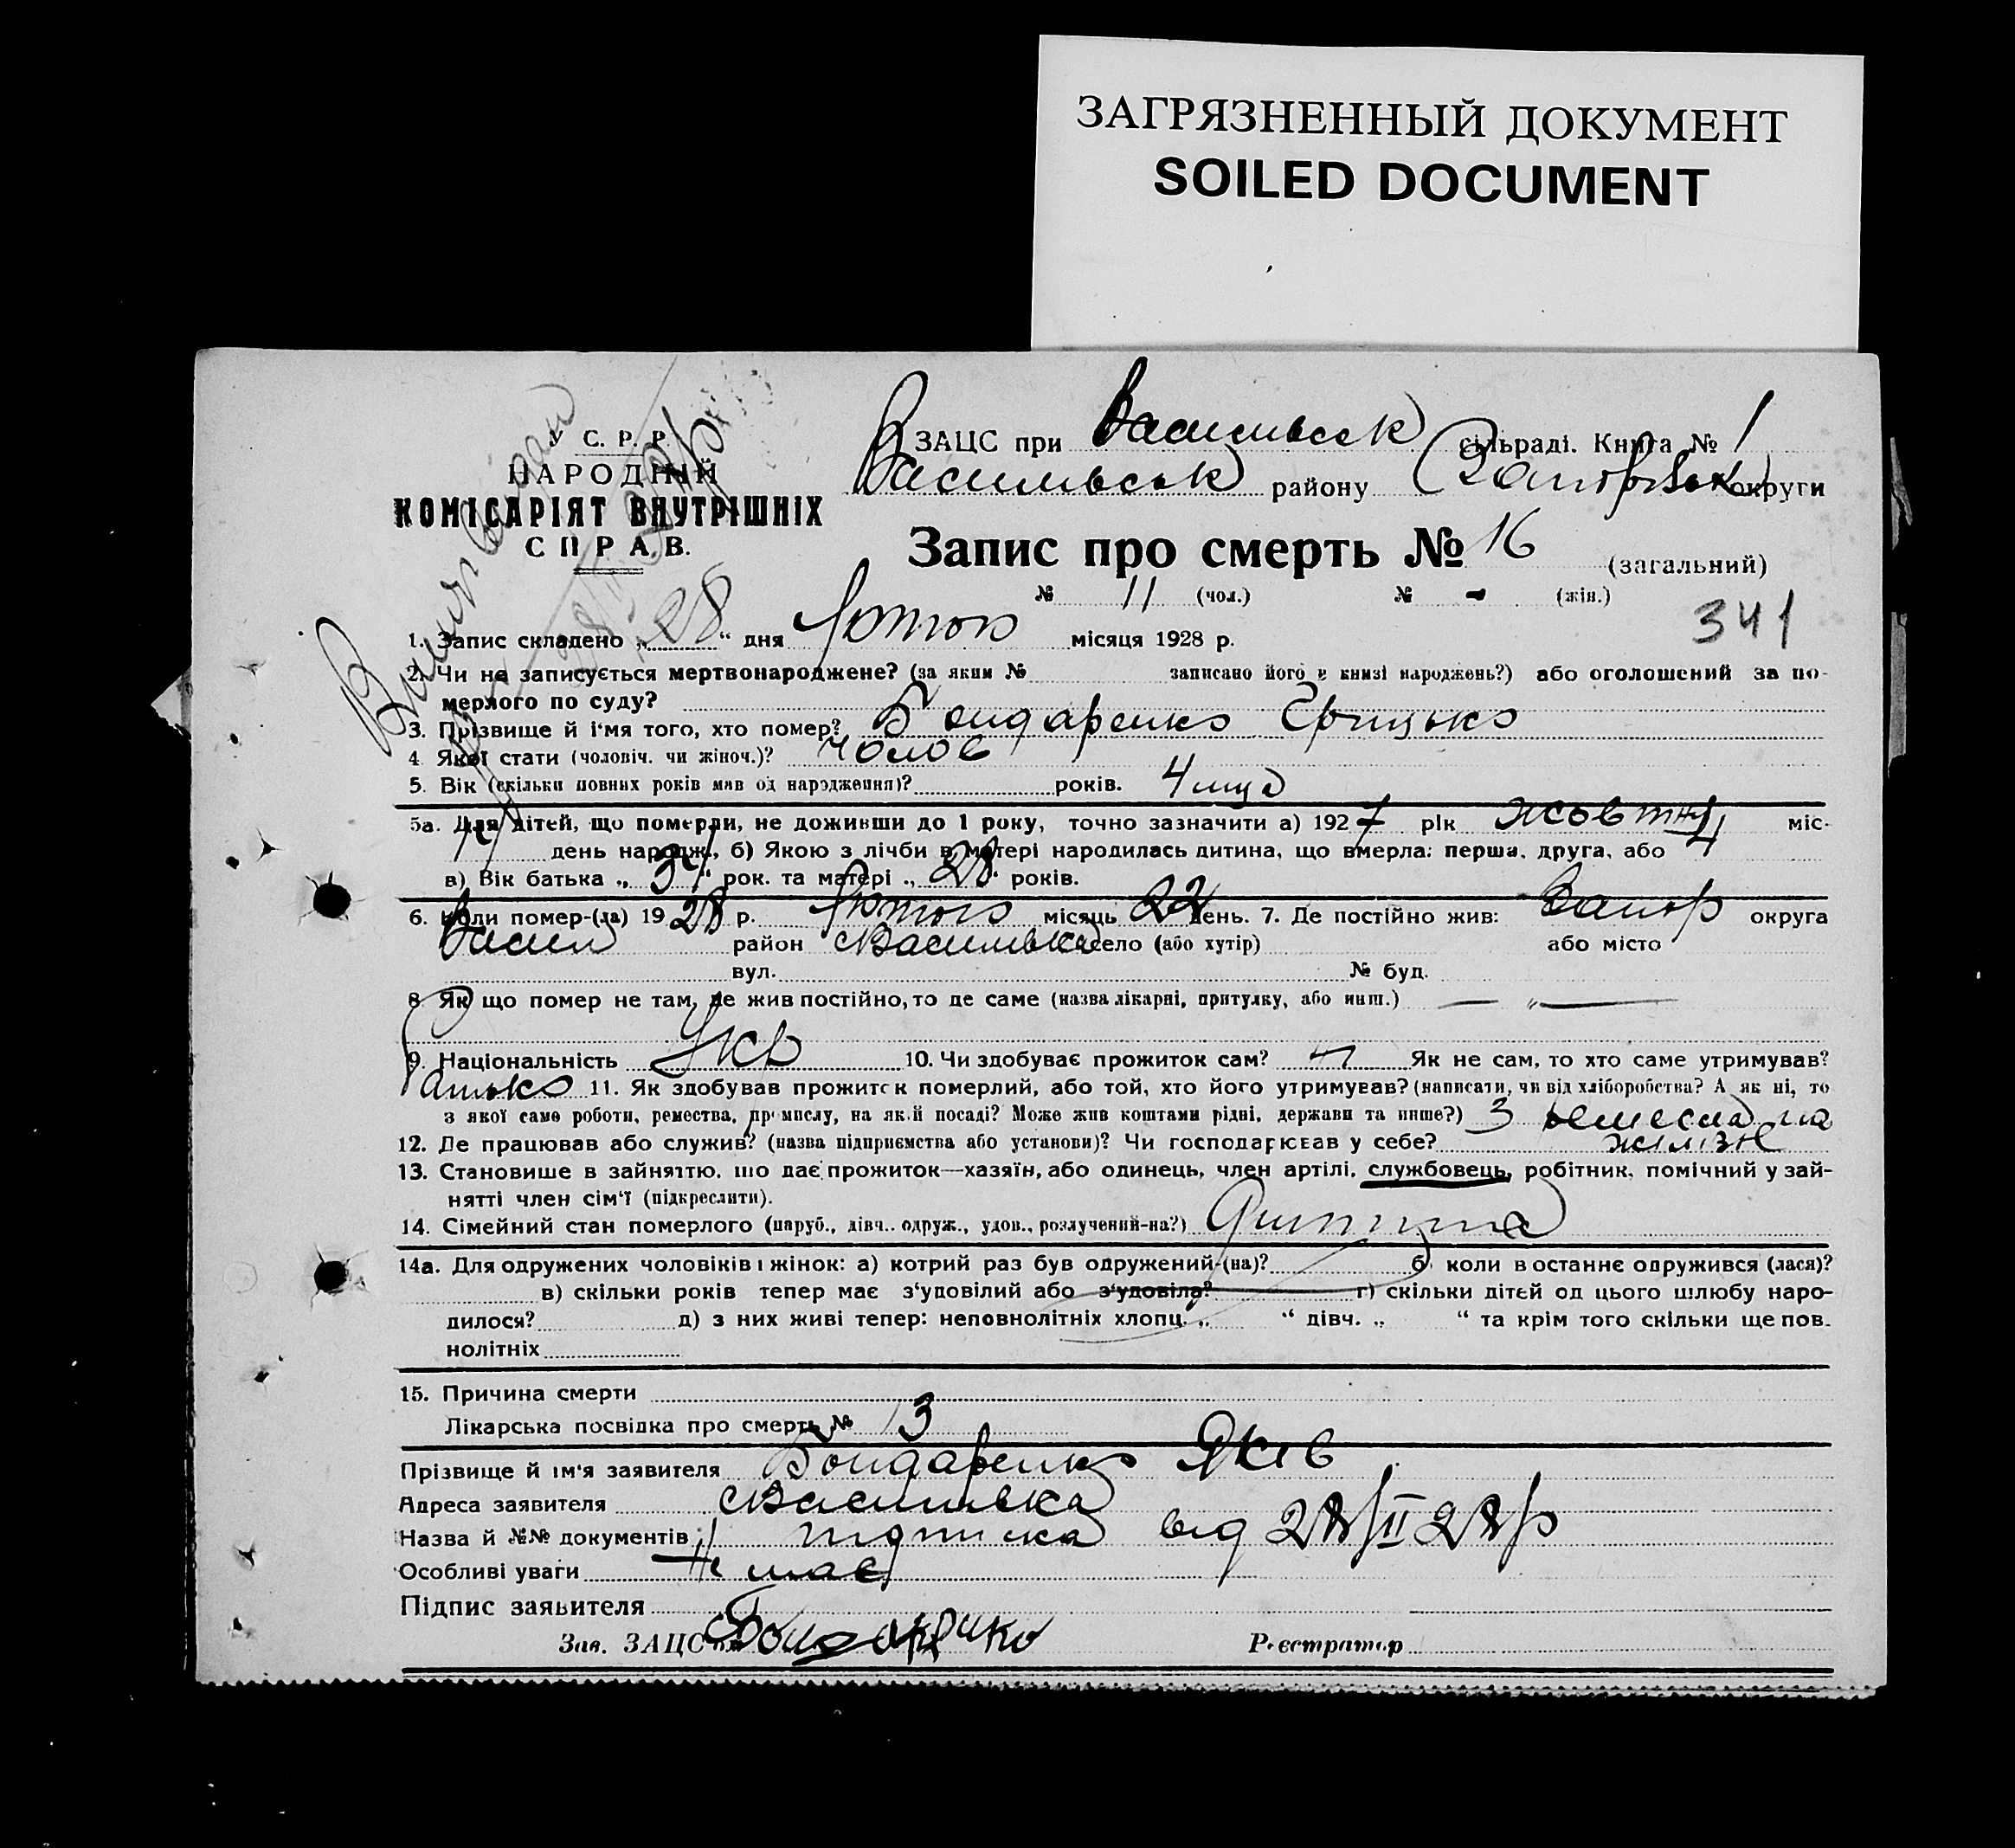 ЗАГРЯЗНЕННЫЙ ДОКУМЕНТ
SOILED DOCUMENT
У С. Р. Р.
НАРОДНІЙ
КОМІСАРІЯТ ВНУТРІШНІХ
СПРАВ.
ЗАЦС при Васильвськ сільраді. Книга № 1
Васильвськ району Запорізьк округи
Запис про смерть № 16 (загальний)
№ 11 (чол.) № - (жін.)
341
1. Запис складено „28“ дня Лютого місяця 1928 р.
2. Чи не записується мертвонароджене? (за яким № записано його в книзі народжень?) або оголошений за по-
мерлого по суду?
3. Прізвище й і'мя того, хто помер? Бондаренко Грицько
4. Якої стати (чоловіч. чи жіноч.)? чолов
5. Вік (скільки повних років мав од народження)? років. 4 місц
5а. Для дітей, що померли, не доживши до 1 року, точно зазначити а) 1927 рік жовтня міс-
день народж., б) Якою з лічби в матері народилась дитина, що вмерла: перша, друга, або 4
в) Вік батька „34“ рок. та матері „28“ років.
6. Коли помер-(ла) 1928 р. Лютого місяць 22 день. 7. Де постійно жив: Запор округа
Васил район Васильвка село (або хутір) або місто
вул. № буд.
8. Як що помер не там, де жив постійно, то де саме (назва лікарні, притулку, або инш.) — „ —
9. Національність Укр 10. Чи здобуває прожиток сам? Як не сам, то хто саме утримував?
батько 11. Як здобував прожиток померлий, або той, хто його утримував? (написати, чи від хліборобства? А як ні, то
з якої саме роботи, ремества, промислу, на якій посаді? Може жив коштами рідні, держави та инше?) З ремесла на
12. Де працював або служив? (назва підприємства або установи)? Чи господарював у себе? жілізн
13. Становище в зайняттю, що дає прожиток—хазяїн, або одинець, член артілі, службовець, робітник, помічний у зай-
нятті член сім'ї (підкреслити).
14. Сімейний стан померлого (паруб., дівч., одруж., удов., розлучений-на?) Дитина
14а. Для одружених чоловіків і жінок: а) котрий раз був одружений-(на)? б) коли востаннє одружився (лася)?
в) скільки років тепер має з'удовілий або з'удовіла? г) скільки дітей од цього шлюбу наро-
дилося? д) з них живі тепер: неповнолітніх хлопц. „ “ дівч. „ “ та крім того скільки ще пов-
нолітніх
15. Причина смерти
Лікарська посвідка про смерть № 13
Прізвище й ім'я заявителя Бондаренко Яків
Адреса заявителя Васильвка
Назва й №№ документів підписка від 28/II 28 р
Особливі уваги Не має
Підпис заявителя
Зав. ЗАЦС'ом Бондаренко Реєстратор